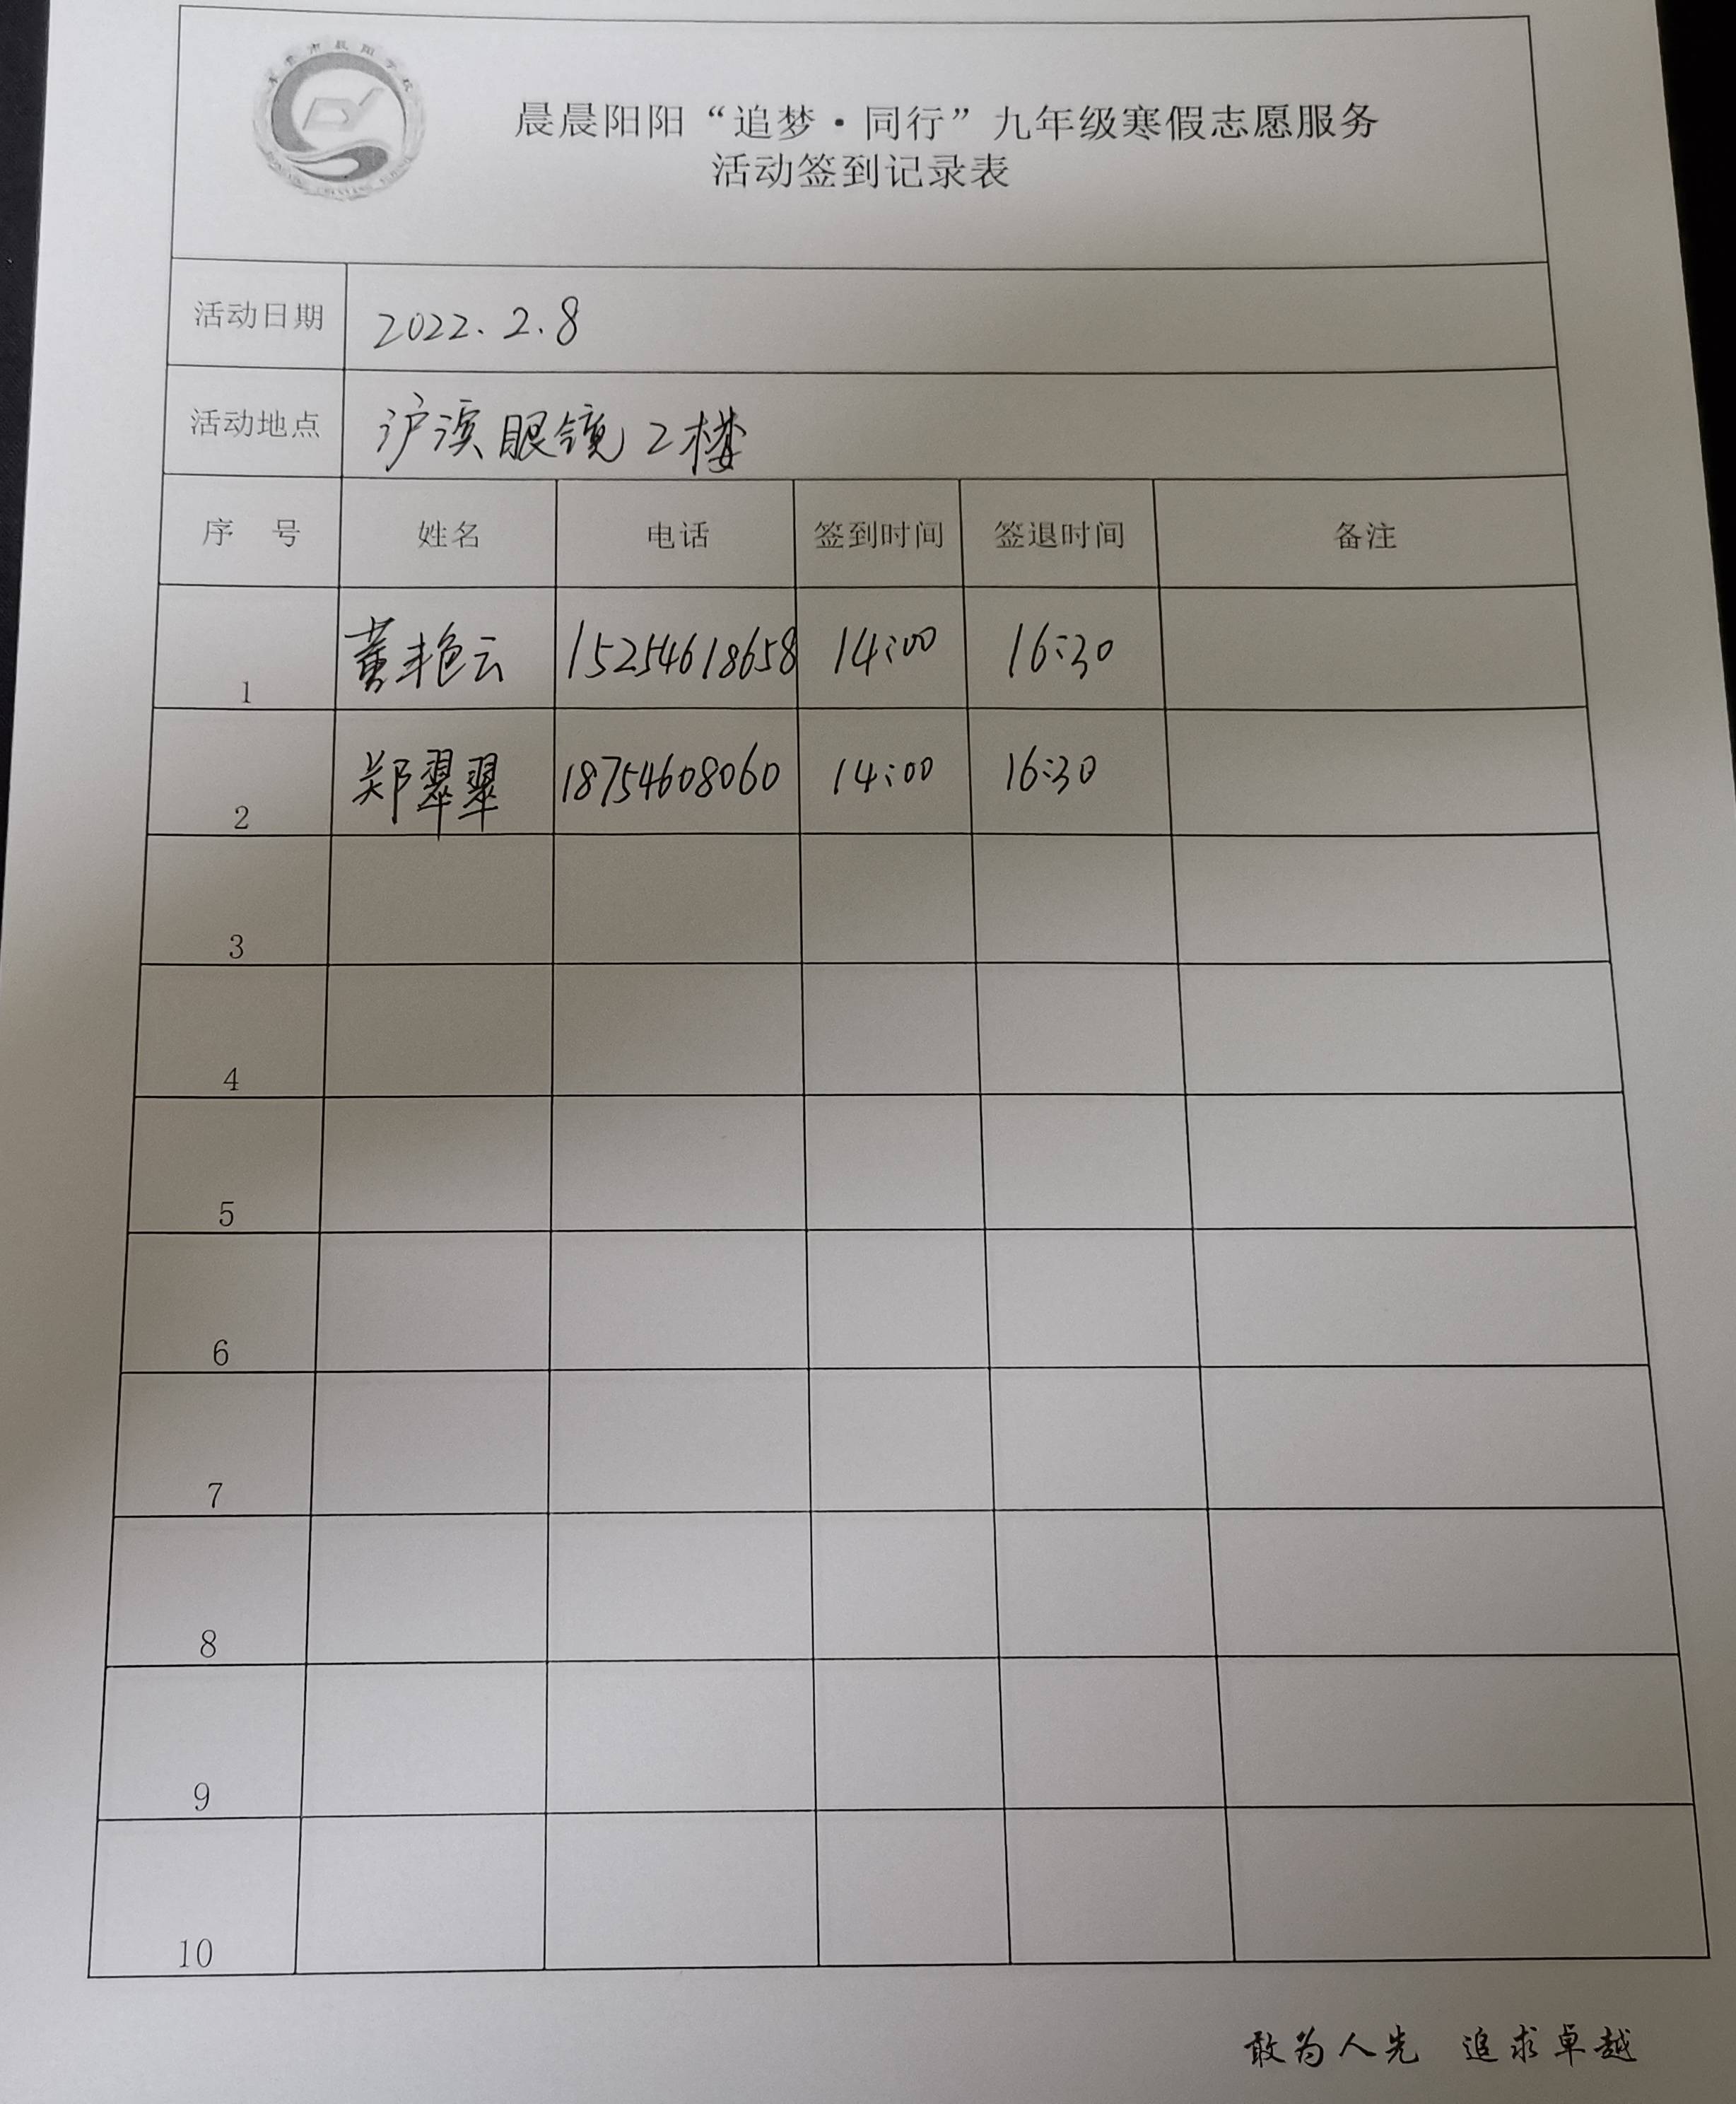 晨晨阳阳“追梦·同行”九年级寒假志愿服务
活动签到记录表
活动日期 2022.2.8
活动地点 沪滨眼镜2楼
序 号 姓名 电话 签到时间 签退时间 备注
1 董艳云 15254618658 14:00 16:30
2 郑翠翠 18754608060 14:00 16:30
3
4
5
6
7
8
9
10
敢为人先 追求卓越